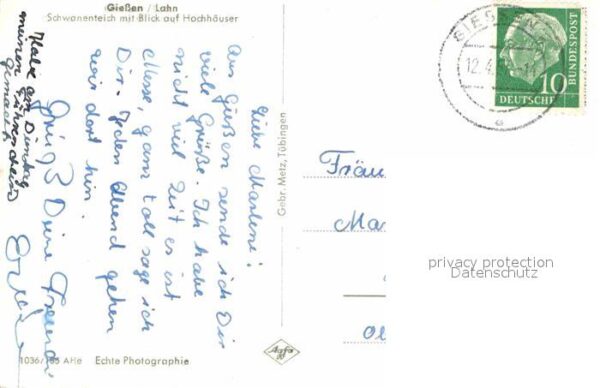 Gießen / Lahn
Schwanenteich mit Blick auf Hochhäuser
Liebe Marlene!
Aus Gießen sende ich Dir
viele Grüße. Ich habe
nicht viel Zeit es ist
Messe, ganz toll sage ich
Dir. Jeden Abend gehen
wir dort hin.
Deine Freundin
Habe am Dienstag
meinen Führerschein
gemacht
1036/ 85 AHe Echte Photographie
Gebr. Metz, Tübingen
Agfa
GIESSEN
12.4.
10
DEUTSCHE
BUNDESPOST
Fräu
Ma
privacy protection
Datenschutz